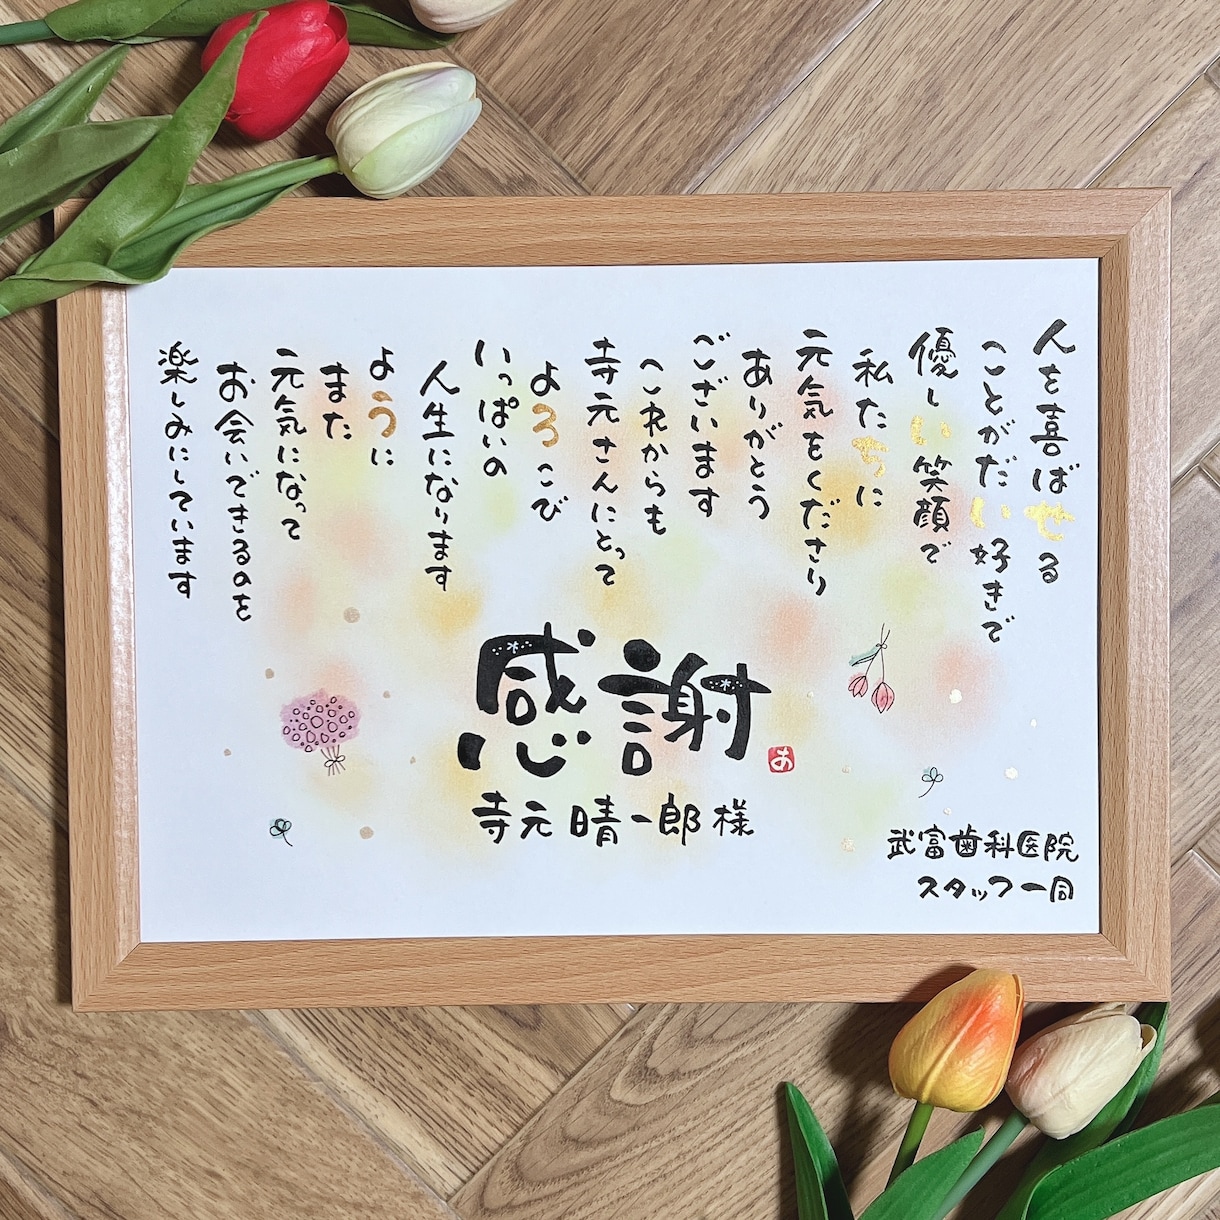 人を喜ばせる
ことがだい好きで
優しい笑顔で
私たちに
元気をくださり
ありがとう
ございます
これからも
寺元さんにとって
よろこび
いっぱいの
人生になります
ように
また
元気になって
お会いできるのを
楽しみにしています
感謝
あ
寺元晴一郎様
武富歯科医院
スタッフ一同